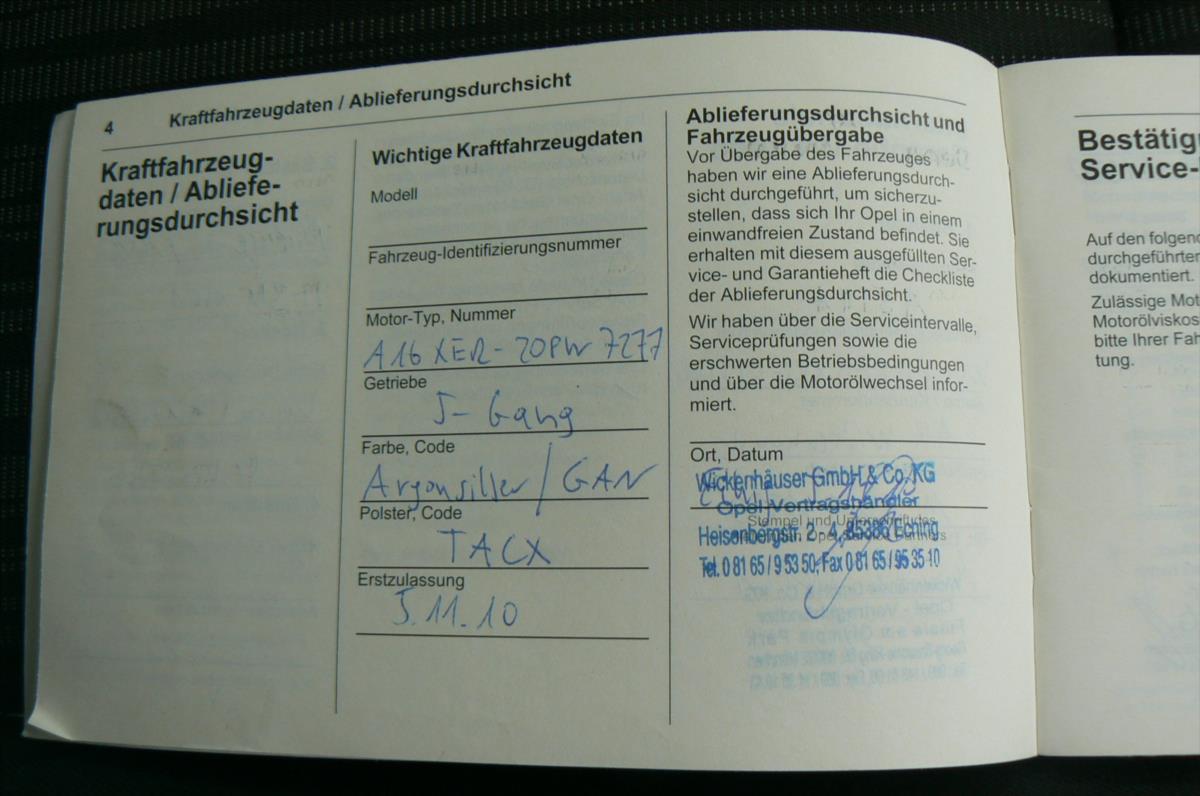 4
Kraftfahrzeugdaten / Ablieferungsdurchsicht
Kraftfahrzeug-
daten / Abliefe-
rungsdurchsicht
Wichtige Kraftfahrzeugdaten
Modell
Fahrzeug-Identifizierungsnummer
Motor-Typ, Nummer
A16 XER-20PW7277
Getriebe
5-Gang
Farbe, Code
Argonsilber / GAN
Polster, Code
TACX
Erstzulassung
5.11.10
Ablieferungsdurchsicht und
Fahrzeugübergabe
Vor Übergabe des Fahrzeuges
haben wir eine Ablieferungsdurch-
sicht durchgeführt, um sicherzu-
stellen, dass sich Ihr Opel in einem
einwandfreien Zustand befindet. Sie
erhalten mit diesem ausgefüllten Ser-
vice- und Garantieheft die Checkliste
der Ablieferungsdurchsicht.
Wir haben über die Serviceintervalle,
Serviceprüfungen sowie die
erschwerten Betriebsbedingungen
und über die Motorölwechsel infor-
miert.
Ort, Datum
Wickenhäuser GmbH & Co. KG
Opel-Vertragshändler
Stempel und Unterschrift des
Heisenbergstr. 2 - 4, 85386 Eching
Opel
Tel. 0 81 65 / 9 53 50, Fax 0 81 65 / 95 35 10
Bestätig
Service-
Auf den folgend
durchgeführten
dokumentiert.
Zulässige Mot
Motorölviskos
bitte Ihrer Fah
tung.